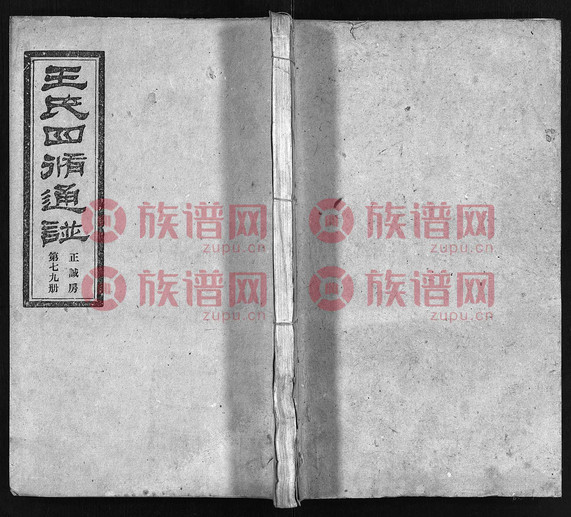 王氏四脩通譜
正誠房
第七九册
族谱网
zupu.cn
族谱网
zupu.cn
族谱网
zupu.cn
族谱网
zupu.cn